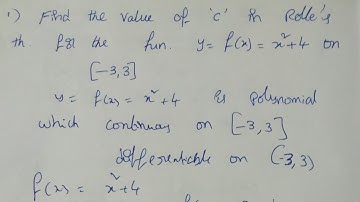 1) Find the value of 'c' in Rolle's
th. for the fun. y = f(x) = x²+4 on
[-3,3]
y = f(x) = x²+4 is polynomial
which continuous on [-3,3]
differentiable on (-3,3)
f(x) = x²+4